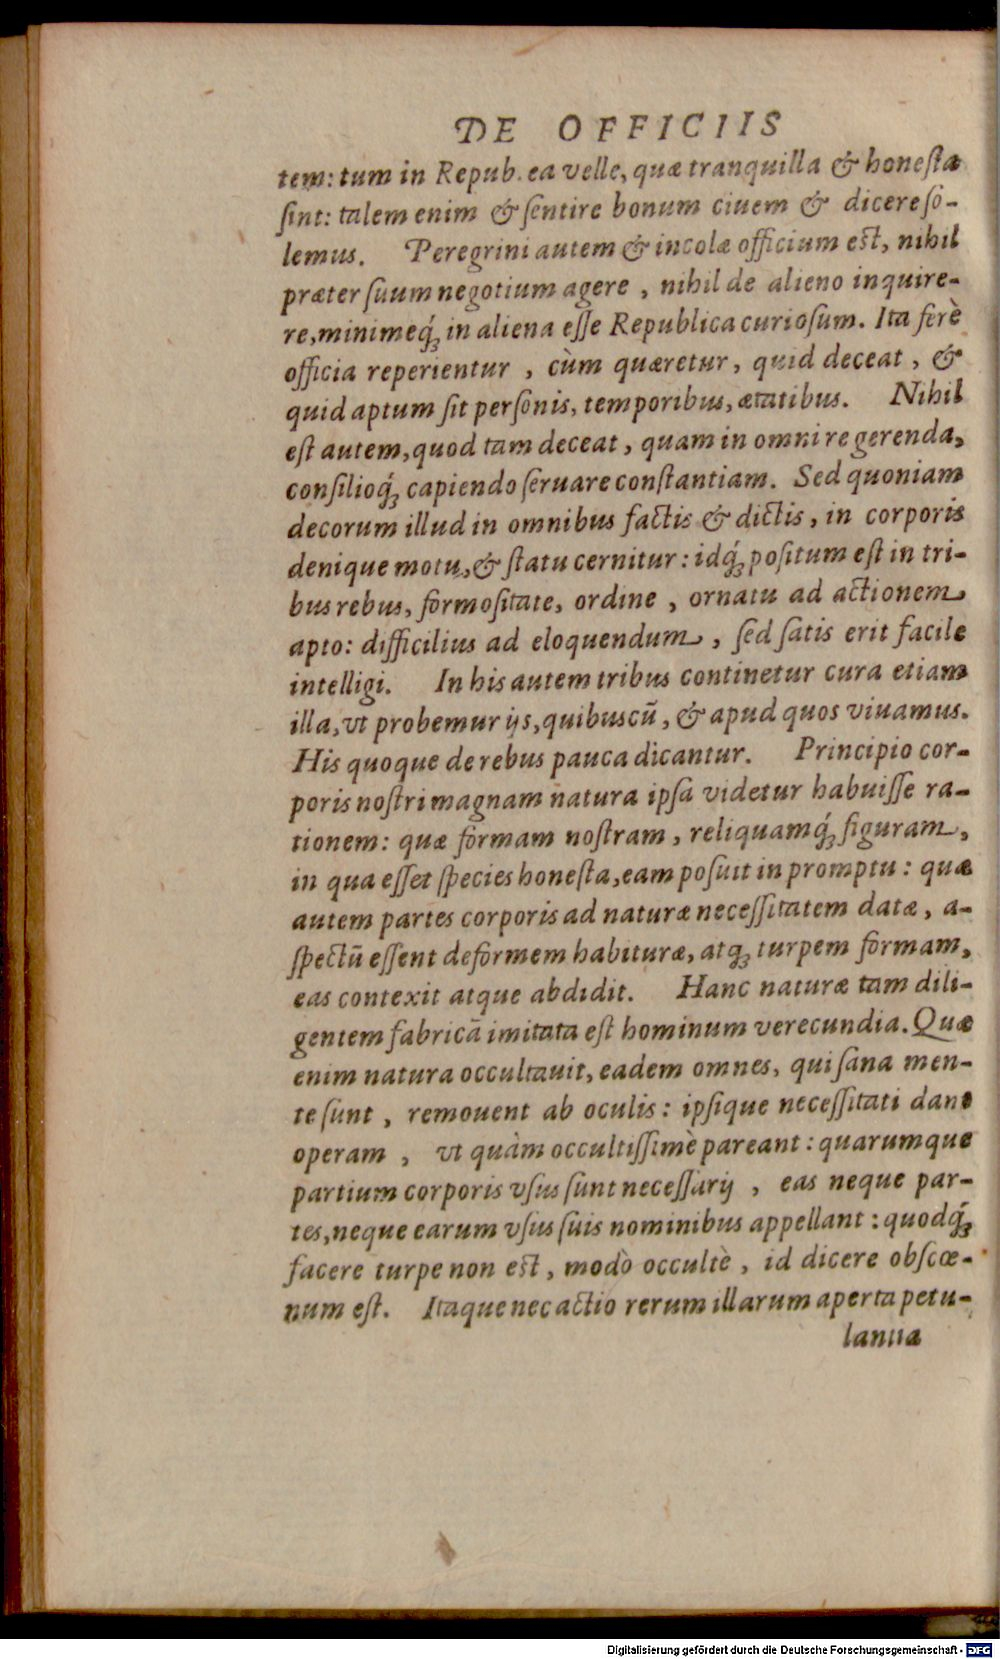 DE OFFICIIS
tem: tum in Repub. ea velle, quæ tranquilla & honeſta
ſint: talem enim & ſentire bonum ciuem & dicere ſo-
lemus. Peregrini autem & incolæ officium eſt, nihil
præter ſuum negotium agere, nihil de alieno inquire-
re, minimeq́ꝫ in aliena eſſe Republica curioſum. Ita ferè
officia reperientur, cùm quæretur, quid deceat, &
quid aptum ſit perſonis, temporibus, ætatibus. Nihil
eſt autem, quod tam deceat, quam in omni re gerenda,
conſilioq́ꝫ capiendo ſeruare conſtantiam. Sed quoniam
decorum illud in omnibus factis & dictis, in corporis
denique motu, & ſtatu cernitur: idq́ꝫ poſitum eſt in tri-
bus rebus, formoſitate, ordine, ornatu ad actionem
apto: difficilius ad eloquendum, ſed ſatis erit facile
intelligi. In his autem tribus continetur cura etiam
illa, vt probemur ijs, quibuscū, & apud quos viuamus.
His quoque de rebus pauca dicantur. Principio cor-
poris noſtri magnam natura ipſa videtur habuiſſe ra-
tionem: quæ formam noſtram, reliquamq́ꝫ figuram,
in qua eſſet ſpecies honeſta, eam poſuit in promptu: quæ
autem partes corporis ad naturæ neceſſitatem datæ, a-
ſpectū eſſent deformem habituræ, atqꝫ turpem formam,
eas contexit atque abdidit. Hanc naturæ tam dili-
gentem fabricā imitata eſt hominum verecundia. Quæ
enim natura occultauit, eadem omnes, qui ſana men-
te ſunt, remouent ab oculis: ipſique neceſſitati dant
operam, vt quàm occultiſſimè pareant: quarumque
partium corporis vſus ſunt neceſſarij, eas neque par-
tes, neque earum vſus ſuis nominibus appellant: quodq́ꝫ
facere turpe non eſt, modò occultè, id dicere obſcœ-
num eſt. Itaque nec actio rerum illarum aperta petu-
lantia
Digitalisierung gefördert durch die Deutsche Forschungsgemeinschaft - DFG